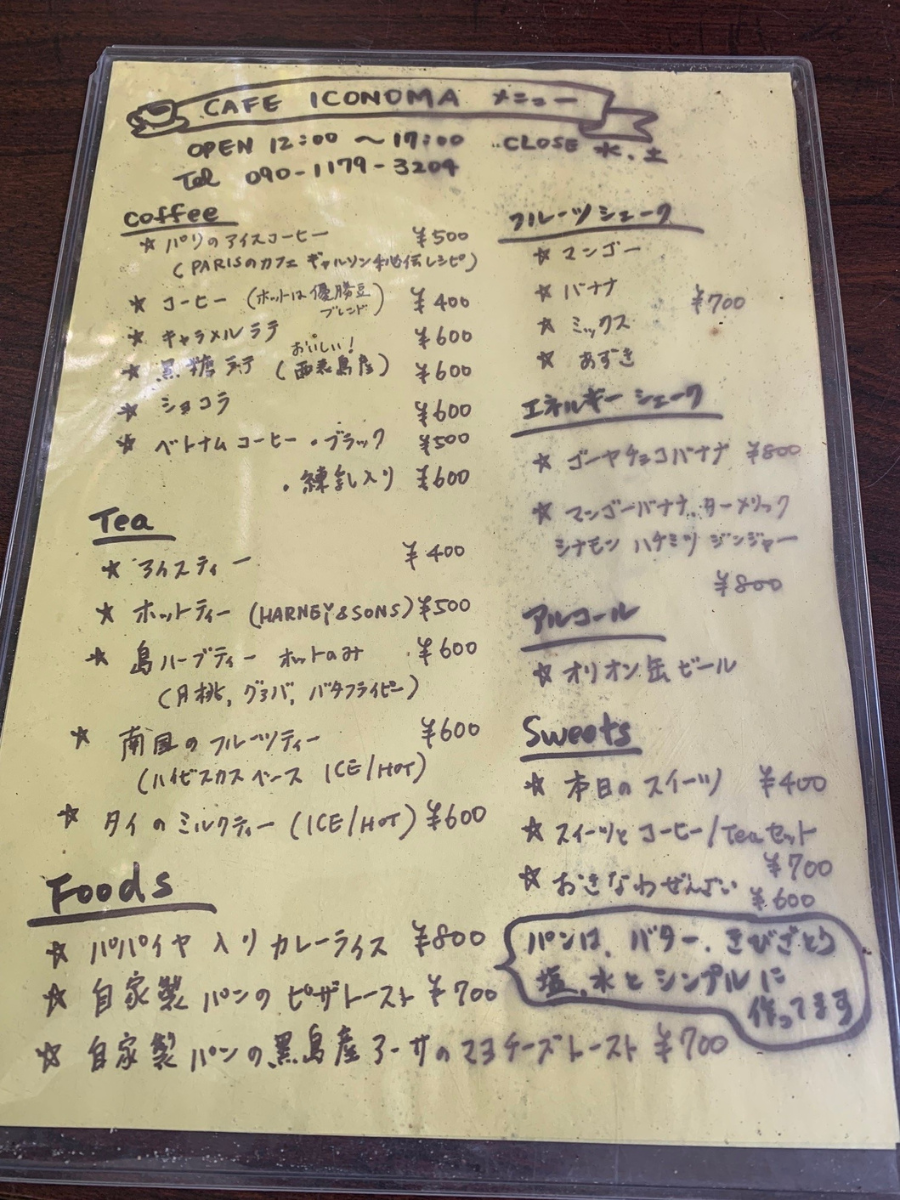 CAFE ICONOMA メニュー
OPEN 12:00 〜 17:00 CLOSE 水、土
Tel 090-1179-3204
Coffee
☆ パリのアイスコーヒー ¥500
(PARISのカフェ ギャルソン秘伝レシピ)
☆ コーヒー (ホットは優勝豆ブレンド) ¥400
☆ キャラメルラテ ¥600
おいしい!
☆ 黒糖ラテ (西表島産) ¥600
☆ ショコラ ¥600
☆ ベトナムコーヒー ・ブラック ¥500
・練乳入り ¥600
Tea
☆ アイスティー ¥400
☆ ホットティー (HARNEY&SONS) ¥500
☆ 島ハーブティー ホットのみ ¥600
(月桃, グァバ, バタフライピー)
☆ 南国のフルーツティー ¥600
(ハイビスカスベース ICE/HOT)
☆ タイのミルクティー (ICE/HOT) ¥600
Foods
☆ パパイヤ入りカレーライス ¥800
☆ 自家製パンのピザトースト ¥700
☆ 自家製パンの黒島産アーサのマヨチーズトースト ¥700
フルーツシェーク
☆ マンゴー
☆ バナナ
¥700
☆ ミックス
☆ あずき
エネルギーシェーク
☆ ゴーヤチョコバナナ ¥800
☆ マンゴーバナナ、ターメリック
シナモン ハチミツ ジンジャー
¥800
アルコール
☆ オリオン缶ビール
Sweets
☆ 本日のスイーツ ¥400
☆ スイーツとコーヒー/Teaセット
¥700
☆ おきなわぜんざい ¥600
パンは、バター、きびざとう
塩、水とシンプルに
作ってます